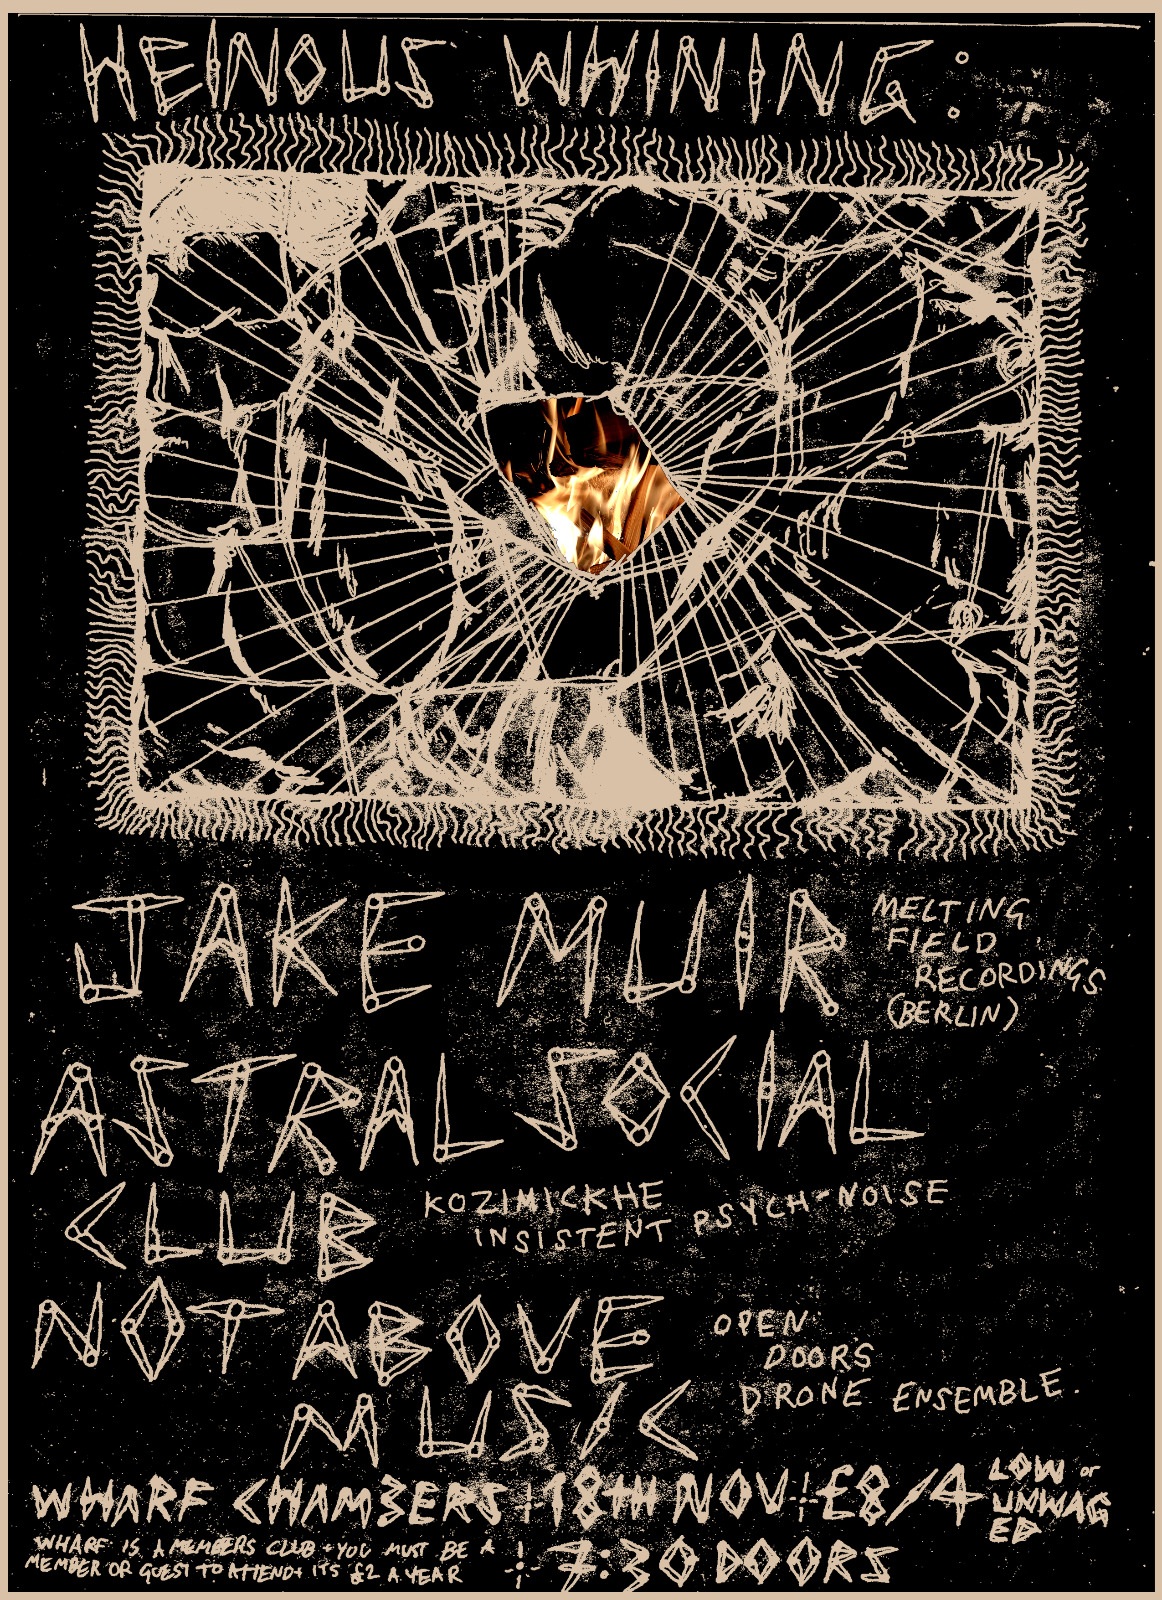 HEINOUS WHINING:
JAKE MUIR
MELTING
FIELD
RECORDINGS
(BERLIN)
ASTRAL SOCIAL
CLUB
KOZIMICKHE
INSISTENT PSYCH-NOISE
NOT ABOVE
MUSIC
OPEN
DOORS
DRONE ENSEMBLE.
WHARF CHAMBERS 18TH NOV £8/4 LOW or
UNWAG
ED
WHARF IS A MEMBERS CLUB + YOU MUST BE A
MEMBER OR GUEST TO ATTEND + ITS £2 A YEAR
7:30 DOORS